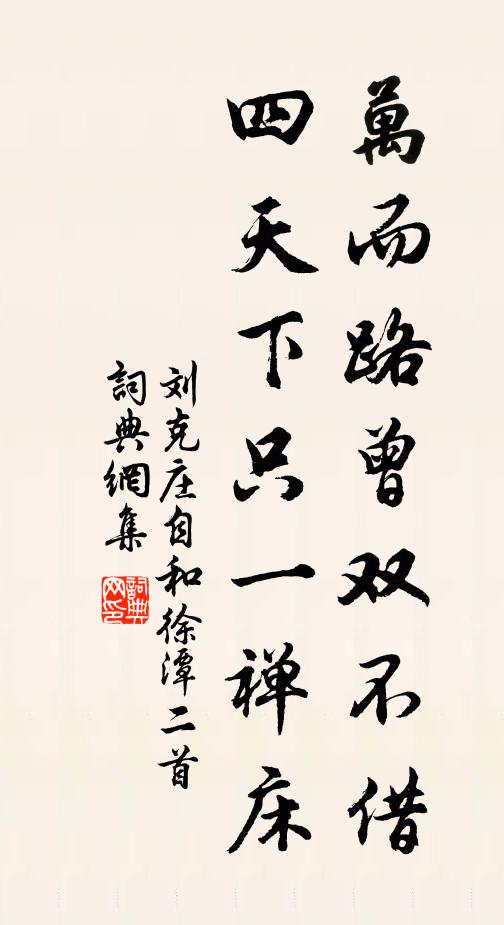 萬而路曾双不借
四天下只一禅床
刘克庄自和徐潭二首
詞典網集
詞典
网印